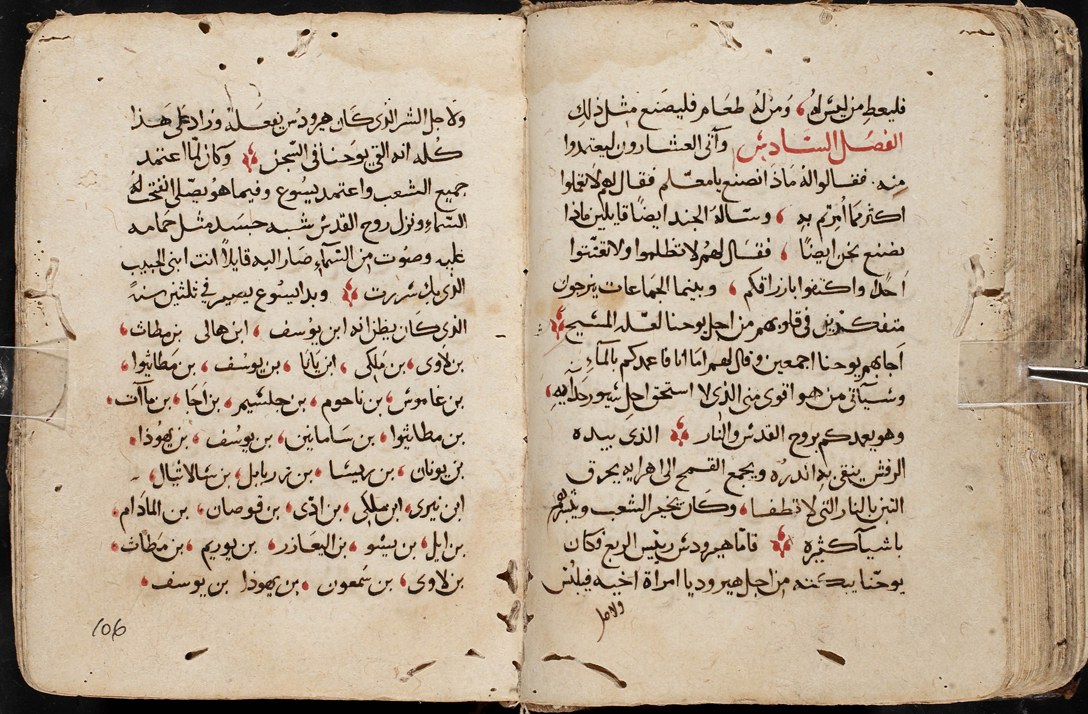 فليعط من ليس له ومن له طعام فليصنع مثل ذلك
الفصل السادس واتى العشارون ليعتمدوا
منه. فقالوا له ماذا نصنع يامعلم فقال لهم لا تفعلوا
اكثر مما امرتم به وساله الجند ايضا قايلين ماذا
نصنع نحن ايضا فقال لهم لا تظلموا ولا تعنتوا
احدا واكتفوا بارزاقكم وبينما الجماعات يرجون
متفكرين في قلوبهم من اجل يوحنا لعله المسيح
اجابهم يوحنا اجمعين وقال لهم اما انا فاعمدكم بالماء
وسياتي من هو اقوى مني الذي لا استحق احل سيور حذايه
وهو يعمدكم بروح القدس والنار الذي بيده
الرفش ينقي به اندره ويجمع القمح الى اهرايه يحرق
التبن بالنار التي لا تطفا وكان يخبر الشعب ويبشرهم
باشيا كثيره فاما هيرودس رييس الربع فكان
يوحنا يبكته من اجل هيروديا امراة اخيه فيلبس
ولاجل
ولاجل الشر الذي كان هيرودس يفعله وزاد على هذا
كله انه القي يوحنا في السجن وكان لما اعتمد
جميع الشعب واعتمد يسوع وفيما هو يصلي انفتحت له
السماء ونزل روح القدس شبه جسد مثل حمامه
عليه وصوت من السماء صار اليه قايلا انت ابني الحبيب
الذي بك سررت وبدا يسوع يصير في تلثين سنة
الذي كان يظن انه ابن يوسف ابن هالى بن مطاث
بن لاوى بن ملكى ابن يانا بن يوسف بن مطاثيوا
بن عاموس بن ناحوم بن حلسيم بن اجا بن ماآت
بن مطاثيوا بن سامانين بن يوسف بن يهوذا
بن يونان بن ريسا بن زربابل بن سالاثيال
ابن نيرى ابن ملكى بن ادى بن قوصان بن المادام
بن ايل بن يسو بن اليعازر بن يوريم بن مطاث
بن لاوى بن سمعون بن يهوذا بن يوسف
106